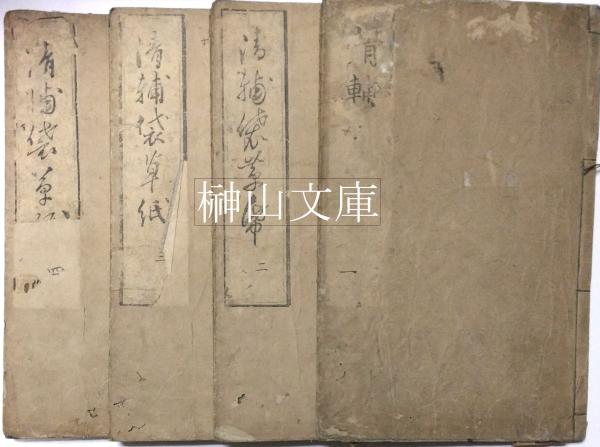 清輔
一
清輔袋草帋
二
清輔袋草紙
三
清輔袋草紙
四
榊山文庫